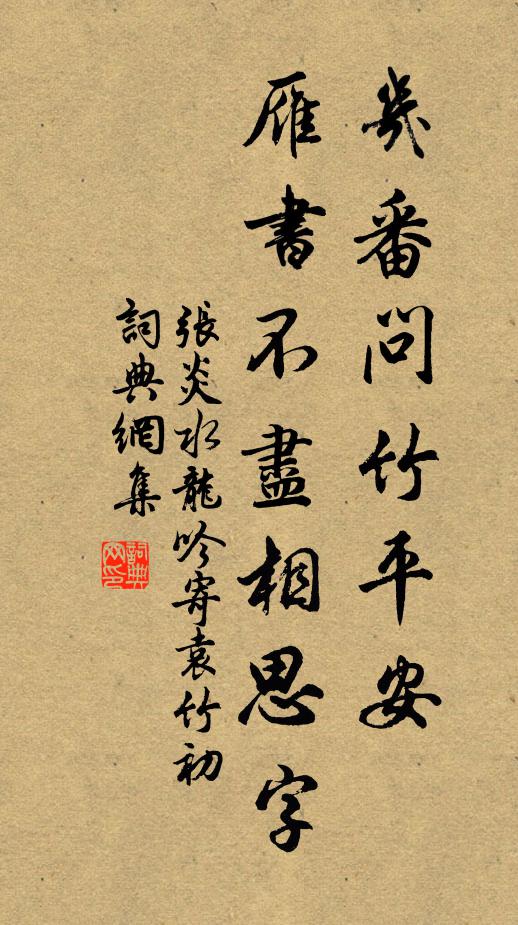 幾番問竹平安
雁書不盡相思字
張炎水龍吟寄袁竹初
詞典網集
詞典
网印